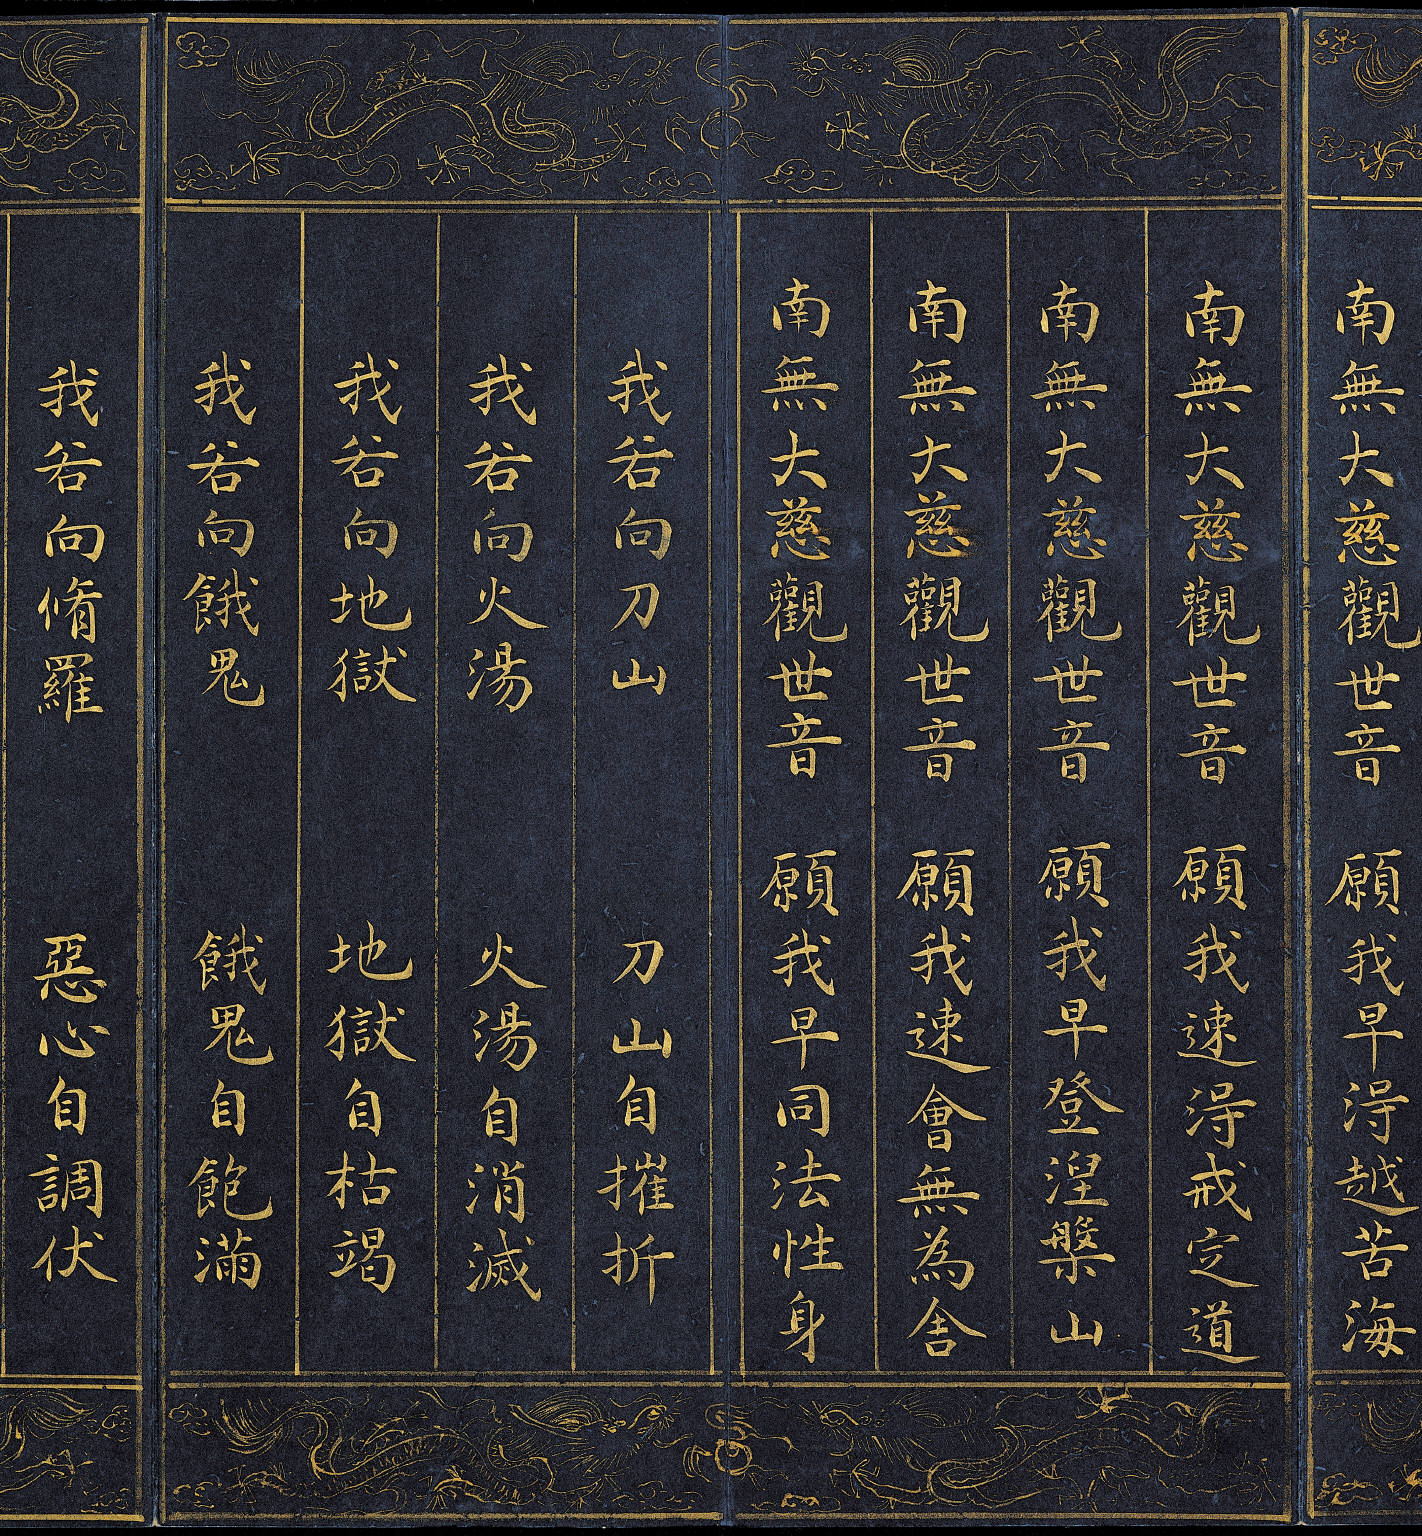 南無大慈觀世音 願我早得越苦海
南無大慈觀世音 願我速得戒定道
南無大慈觀世音 願我早登涅槃山
南無大慈觀世音 願我速會無為舍
南無大慈觀世音 願我早同法性身
我若向刀山 刀山自摧折
我若向火湯 火湯自消滅
我若向地獄 地獄自枯竭
我若向餓鬼 餓鬼自飽滿
我若向脩羅 惡心自調伏